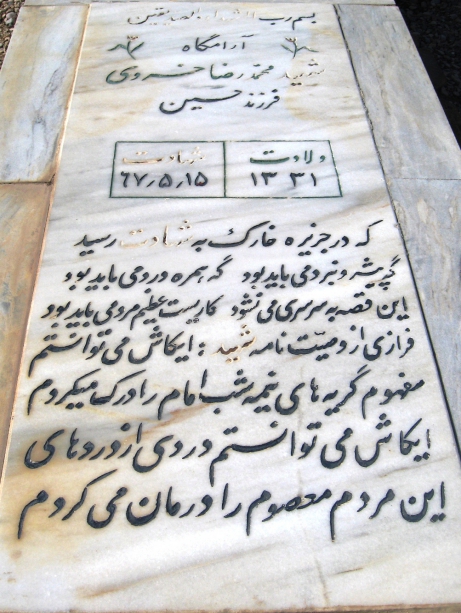 بسم رب الشهداء والصدیقین
آرامگاه
شهید محمدرضا خسروی
فرزند حسین
ولادت شهادت
۱۳۳۱ ۶۷٫۵٫۱۵
که در جزیره خارک به شهادت رسید
گه پیشه و نبرد می باید بود گه همره درد می باید بود
این قصه به سرسری نمی شود کاریست عظیم مرد می باید بود
فرازی از وصیت نامه شهید : ایکاش می توانستم
مفهوم گریه های نیمه شب امام را درک میکردم
ایکاش می توانستم دردی از دردهای
این مردم معصوم را درمان می کردم